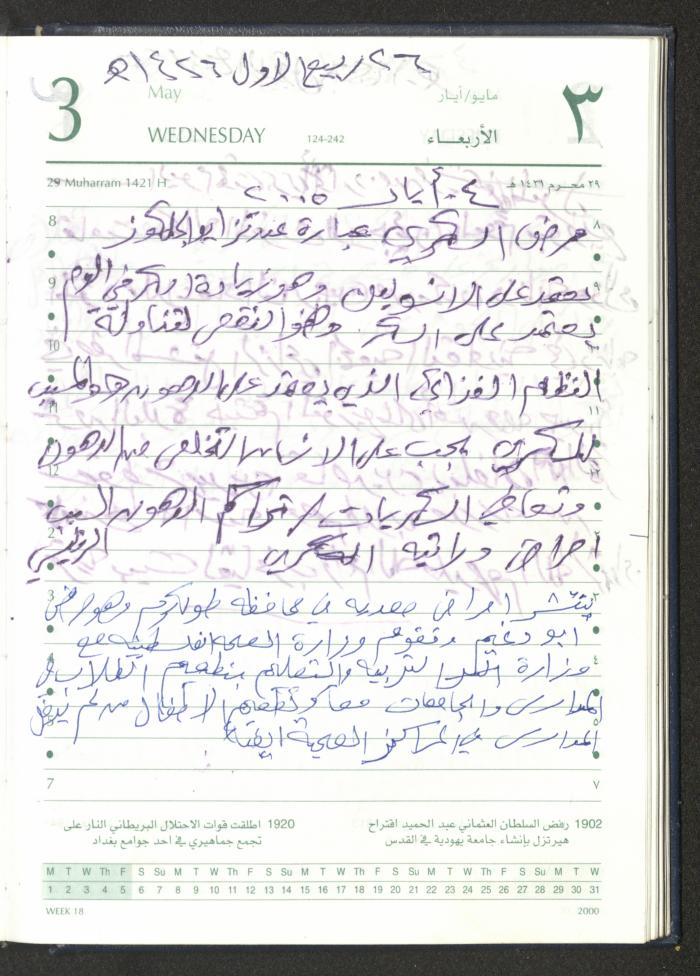 ٢٦ ربيع الاول ١٤٢٦ ه
3
May
مايو/أيار
٣
WEDNESDAY
124-242
الأربعـاء
29 Muharram 1421 H
٢٩ محـرم ١٤٢١ هـ
٤ أيار ٢٠٠٥
8 مرض السكري عبارة عن ٨
9 يعتمد على الانسولين وهو زيادة السكر في الدم ٩
يعتمد على السكر وهو النقص
10 ١٠
النظام الغذائي الذي يعتمد على الدهون
11 ١١
للسكري يجب على الانسان التخلص من الدهون
12
وتعاطي السكريات / تراكم الدهون السبب
امراض وراثية الرئيسي
2
3 ينتشر امراض معديه في محافظة طولكرم وهو مرض ٣
ابو دغيم وتقوم وزارة الصحة الفلسطينيه مع
4 وزارة التربيه والتعليم بتطعيم الطلاب في ٤
المدارس والجامعات وتطعيم الاطفال من لم
المدارس في المراكز الصحية
7 ٧
1902 رفض السلطان العثماني عبد الحميد اقتراح
هيرتزل بإنشاء جامعة يهودية في القدس
1920 اطلقت قوات الاحتلال البريطاني النار على
تجمع جماهيري في احد جوامع بغداد
M T W Th F S Su M T W Th F S Su M T W Th F S Su M T W Th F S Su M T W
1 2 3 4 5 6 7 8 9 10 11 12 13 14 15 16 17 18 19 20 21 22 23 24 25 26 27 28 29 30 31
WEEK 18
2000